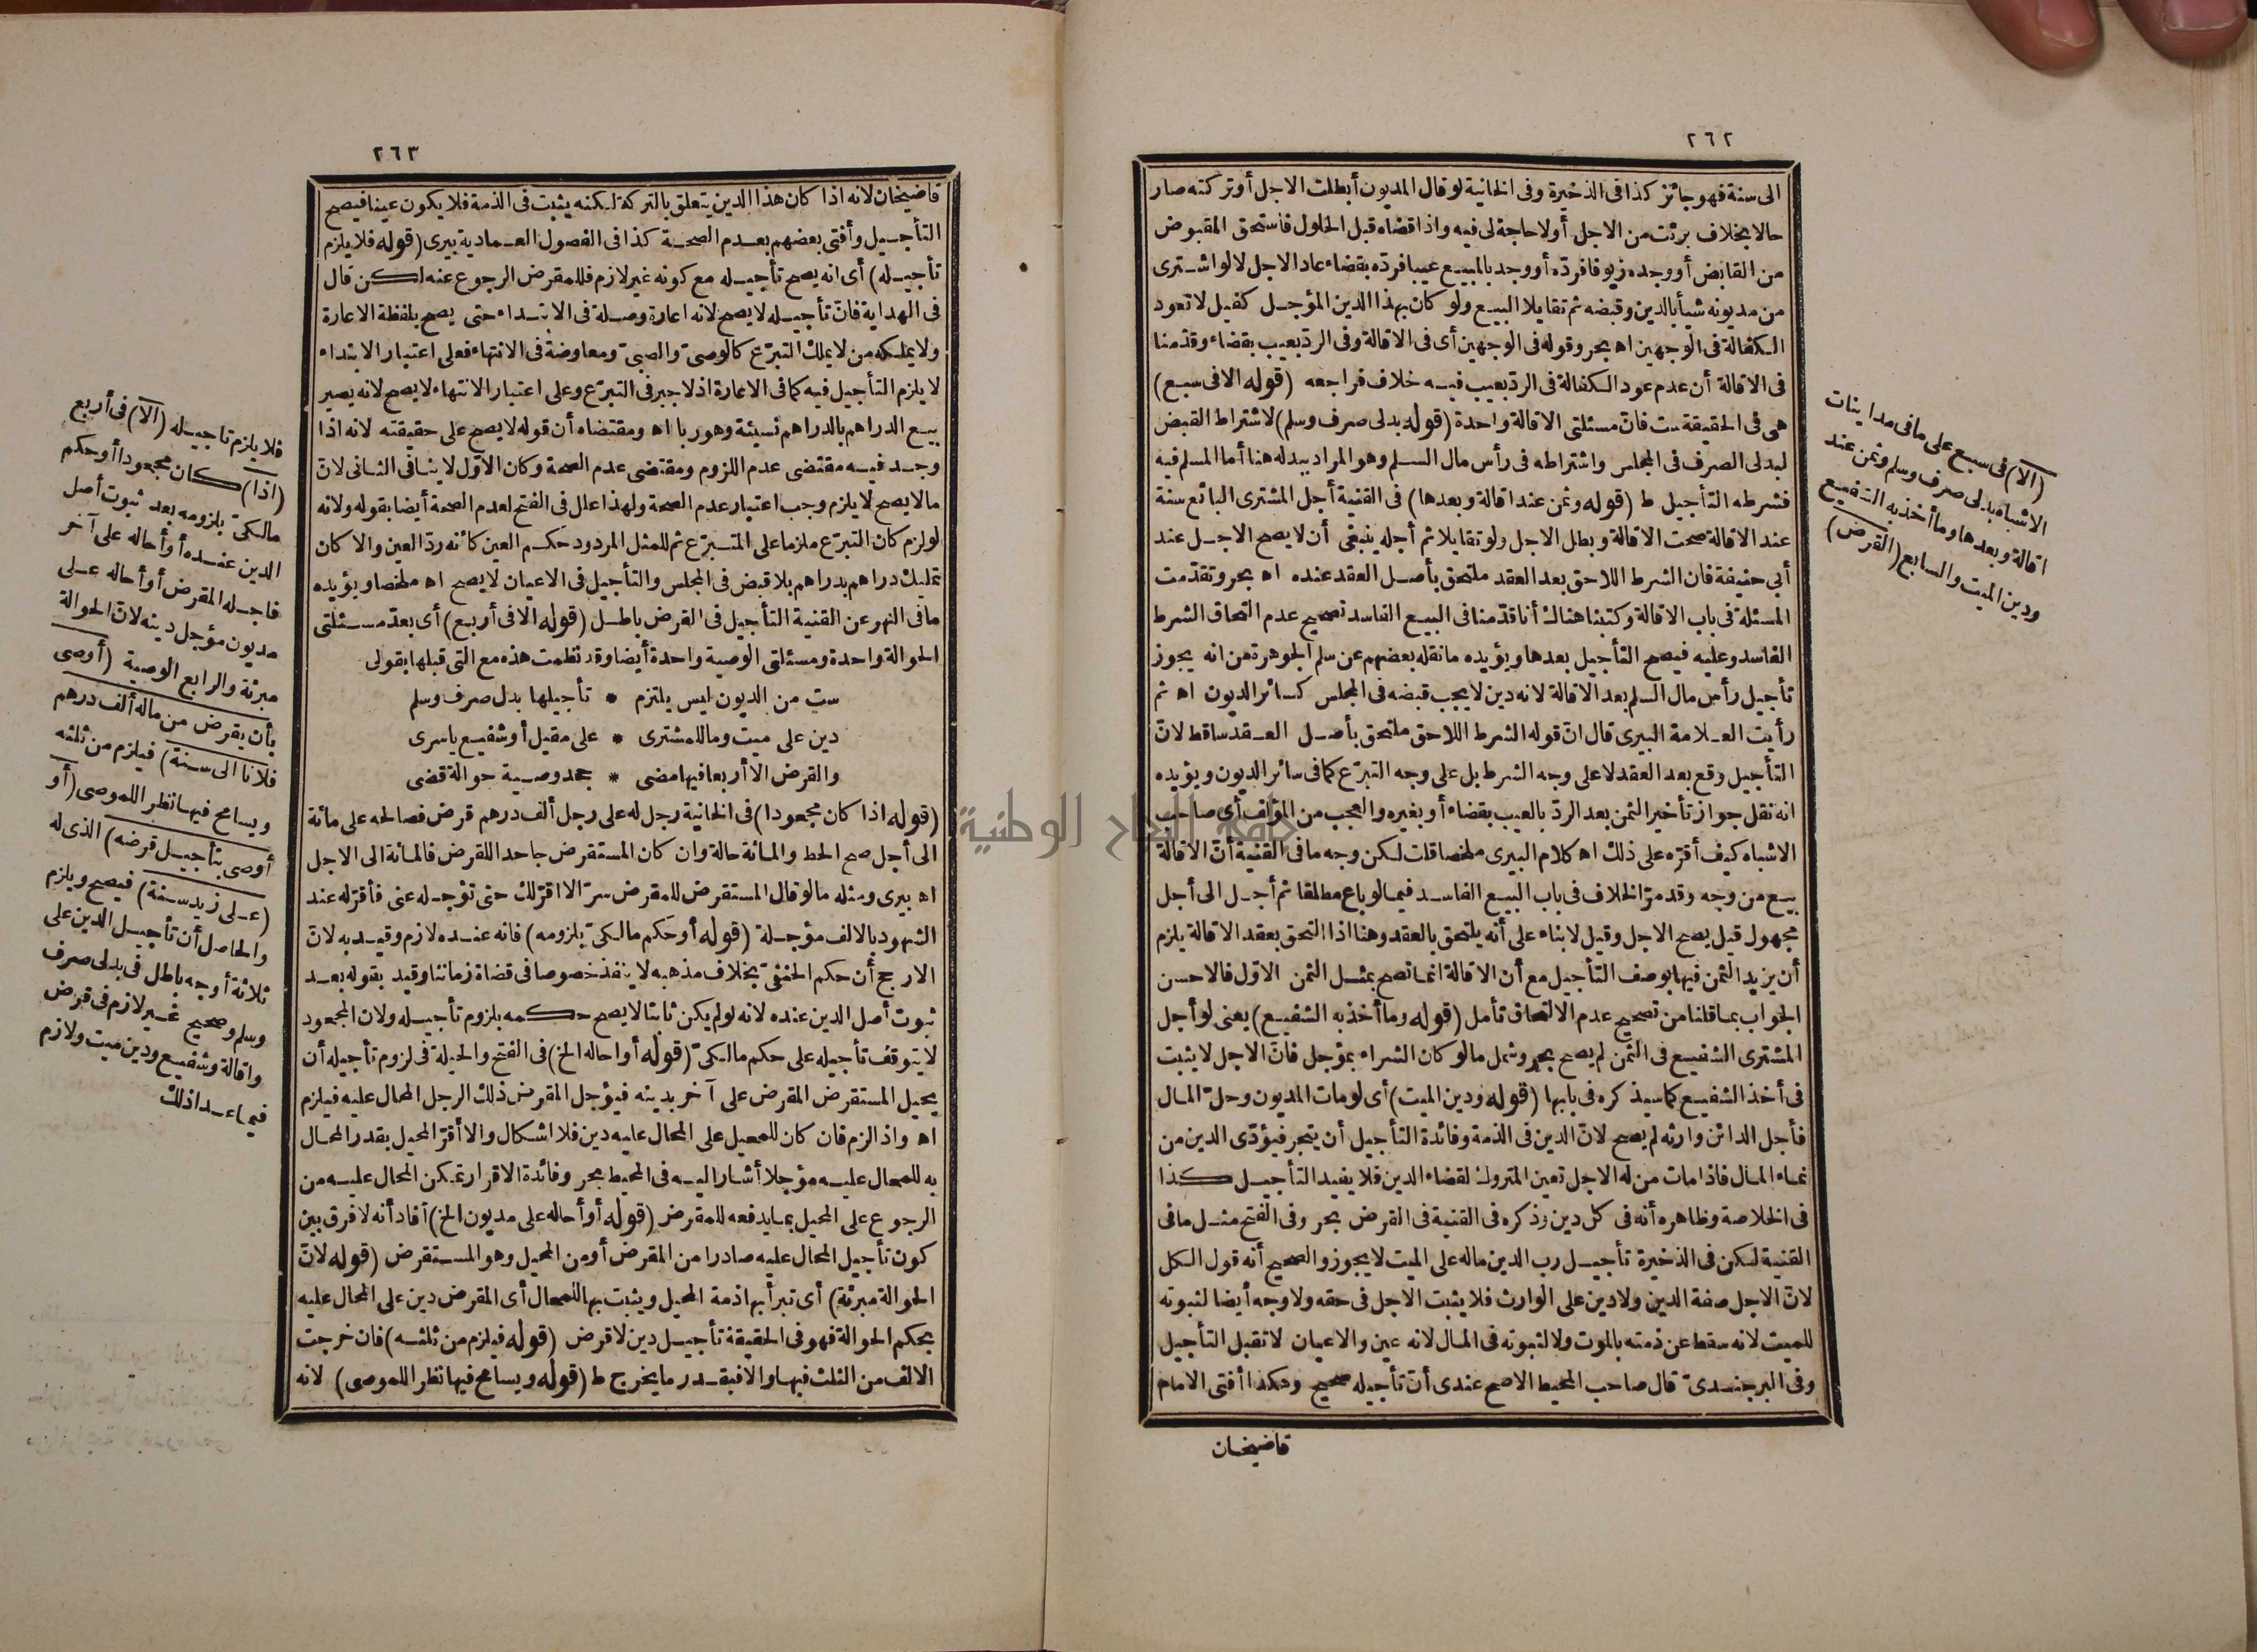 ٢٦٢
الى سنة فهو جائز كذا فى الذخيرة وفى الخانية لو قال المديون أبطلت الاجل أو تركته صار
حالا بخلاف برئت من الاجل أو لا حاجة لى فيه واذا قضاه قبل الحلول فاستحق المقبوض
من القابض أو وجده زيوفا فردّه أو وجد بالمبيع عيبا فردّه بقضاء عاد الاجل لا لو اشترى
من مديونه شيأ بالدين وقبضه ثم تقايلا البيع ولو كان بهذا الدين المؤجل كفيل لا تعود
الكفالة فى الوجهين اه بحر وقوله فى الوجهين أى فى الاقالة وفى الردّ بعيب بقضاء وقدّمنا
فى الاقالة أن عدم عود الكفالة فى الردّ بعيب فيه خلاف فراجعه (قوله الا فى سبع)
هى فى الحقيقة ست فانّ مسئلتى الاقالة واحدة (قوله بدلى صرف وسلم) لاشتراط القبض
لبدلى الصرف فى المجلس واشتراطه فى رأس مال السلم وهو المراد ببدله هنا أما المسلم فيه
فشرطه التأجيل ط (قوله وثمن عند اقالة وبعدها) فى القنية أجل المشترى البائع سنة
عند الاقالة صحت الاقالة وبطل الاجل ولو تقايلا ثم أجله ينبغى أن لا يصح الاجل عند
أبى حنيفة فان الشرط اللاحق بعد العقد ملتحق بأصل العقد عنده اه بحر وتقدّمت
المسئلة فى باب الاقالة وكتبنا هناك أنا قدّمنا فى البيع الفاسد تصحيح عدم التحاق الشرط
الفاسد وعليه فيصح التأجيل بعدها ويؤيده ما نقله بعضهم عن سلم الجوهرة من انه يجوز
تأجيل رأس مال السلم بعد الاقالة لانه دين لا يجب قبضه فى المجلس كسائر الديون اه ثم
رأيت العلامة البيرى قال انّ قوله الشرط اللاحق ملتحق بأصل العقد ساقط لانّ
التأجيل وقع بعد العقد لا على وجه الشرط بل على وجه التبرّع كما فى سائر الديون ويؤيده
انه نقل جواز تأخير الثمن بعد الردّ بالعيب بقضاء أو بغيره والعجب من المؤلف أى صاحب
الاشباه كيف أقرّه على ذلك اه كلام البيرى ملخصا قلت لكن وجه ما فى القنية أنّ الاقالة
بيع من وجه وقد مرّ الخلاف فى باب البيع الفاسد فيما لو باع مطلقا ثم أجل الى أجل
مجهول قيل يصح الاجل وقيل لا بناء على أنه يلتحق بالعقد وهنا اذا التحق بعقد الاقالة يلزم
أن يزيد الثمن فيها بوصف التأجيل مع أن الاقالة انما تصح بمثل الثمن الاوّل فالاحسن
الجواب بما قلنا من تصحيح عدم الالتحاق تأمل (قوله وما أخذ به الشفيع) يعنى لو أجل
المشترى الشفيع فى الثمن لم يصح بحر وشمل ما لو كان الشراء بمؤجل فانّ الاجل لا يثبت
فى أخذ الشفيع كما سيذكره فى بابها (قوله ودين الميت) أى لو مات المديون وحلّ المال
فأجل الدائن وارثه لم يصح لانّ الدين فى الذمة وفائدة التأجيل أن يتجر فيؤدّى الدين من
نماء المال فاذا مات من له الاجل تعين المتروك لقضاء الدين فلا يفيد التأجيل كذا
فى الخلاصة وظاهره أنه فى كل دين وذكره فى القنية فى القرض بحر وفى الفتح مثل ما فى
القنية لكن فى الذخيرة تأجيل رب الدين ماله على الميت لا يجوز والصحيح أنه قول الكل
لانّ الاجل صفة الدين ولا دين على الوارث فلا يثبت الاجل فى حقه ولا وجه أيضا لثبوته
للميت لانه سقط عن ذمته بالموت ولا لثبوته فى المال لانه عين والاعيان لا تقبل التأجيل
وفى البرجندىّ قال صاحب المحيط الاصح عندى أنّ تأجيله صحيح وهكذا أفتى الامام
قاضيخان
(الا) فى سبع على ما فى مداينات
الاشباه بدلى صرف وسلم وثمن عند
اقالة وبعدها وما أخذ به الشفيع
ودين الميت والسابع (القرض)
٢٦٣
قاضيخان لانه اذا كان هذا الدين يتعلق بالتركة لكنه يثبت فى الذمة فلا يكون عينا فيصح
التأجيل وأفتى بعضهم بعدم الصحة كذا فى الفصول العمادية بيرى (قوله فلا يلزم
تأجيله) أى انه يصح تأجيله مع كونه غير لازم فللمقرض الرجوع عنه لكن قال
فى الهداية فانّ تأجيله لا يصح لانه اعارة وصلة فى الابتداء حتى يصح بلفظة الاعارة
ولا يملكه من لا يملك التبرّع كالوصىّ والصبىّ ومعاوضة فى الانتهاء فعلى اعتبار الابتداء
لا يلزم التأجيل فيه كما فى الاعارة اذ لا جبر فى التبرّع وعلى اعتبار الانتهاء لا يصح لانه يصير
بيع الدراهم بالدراهم نسيئة وهو ربا اه ومقتضاه أن قوله لا يصح على حقيقته لانه اذا
وجد فيه مقتضى عدم اللزوم ومقتضى عدم الصحة وكان الاوّل لا ينافى الثانى لانّ
ما لا يصح لا يلزم وجب اعتبار عدم الصحة ولهذا علل فى الفتح لعدم الصحة أيضا بقوله ولانه
لو لزم كان التبرّع ملزما على المتبرّع ثم للمثل المردود حكم العين كأنه ردّ العين والا كان
تمليك دراهم بدراهم بلا قبض فى المجلس والتأجيل فى الاعيان لا يصح اه ملخصا ويؤيده
ما فى النهر عن القنية التأجيل فى القرض باطل (قوله الا فى أربع) أى بعدّ مسئلتى
الحوالة واحدة ومسئلتى الوصية واحدة أيضا وقد نظمت هذه مع التى قبلها بقولى
ست من الديون ليس يلتزم * تأجيلها بدل صرف وسلم
دين على ميت وما للمشترى * على مقيل أو شفيع يا سرى
والقرض الا أربعا فيها مضى * جحد وصية حوالة قضى
(قوله اذا كان مجحودا) فى الخانية رجل له على رجل ألف درهم قرض فصالحه على مائة
الى أجل صح الحط والمائة حالة وان كان المستقرض جاحدا للقرض فالمائة الى الاجل
اه بيرى ومثله ما لو قال المستقرض للمقرض سرّا لا اقرّ لك حتى تؤجله عنى فأقرّ له عند
الشهود بالالف مؤجلة (قوله أو حكم مالكىّ بلزومه) فانه عنده لازم وقيد به لانّ
الارجح أن حكم الحنفىّ بخلاف مذهبه لا ينفذ خصوصا فى قضاة زماننا وقيد بقوله بعد
ثبوت أصل الدين عنده لانه لو لم يكن ثابتا لا يصح حكمه بلزوم تأجيله ولان المجحود
لا يتوقف تأجيله على حكم مالكىّ (قوله أو احاله الخ) فى الفتح والحيلة فى لزوم تأجيله أن
يحيل المستقرض المقرض على آخر بدينه فيؤجل المقرض ذلك الرجل المحال عليه فيلزم
اه واذا لزم فان كان للمحيل على المحال عليه دين فلا اشكال والا أقرّ المحيل بقدر المحال
به للمحال عليه مؤجلا أشار اليه فى المحيط بحر وفائدة الاقرار تمكن المحال عليه من
الرجوع على المحيل بما يدفعه للمقرض (قوله أو أحاله على مديون الخ) أفاد أنه لا فرق بين
كون تأجيل المحال عليه صادرا من المقرض أو من المحيل وهو المستقرض (قوله لانّ
الحوالة مبرئة) أى تبرأ بها ذمة المحيل ويثبت بها للمحال أى المقرض دين على المحال عليه
بحكم الحوالة فهو فى الحقيقة تأجيل دين لا قرض (قوله فيلزم من ثلثه) فان خرجت
الالف من الثلث فيها والا فبقدر ما يخرج ط (قوله ويسامح فيها نظرا للموصى) لانه
فلا يلزم تأجيله (الا) فى أربع
(اذا) كان مجحودا أو حكم
مالكىّ بلزومه بعد ثبوت أصل
الدين عنده أو أحاله على آخر
فاجله المقرض أو أحاله على
مديون مؤجل دينه لانّ الحوالة
مبرئة والرابع الوصية (أوصى
بأن يقرض من ماله ألف درهم
فلانا الى سنة) فيلزم من ثلثه
ويسامح فيها نظرا للموصى (أو
أوصى بتأجيل قرضه) الذى له
(على زيد سنة) فيصح ويلزم
والحاصل أن تأجيل الدين على
ثلاثة أوجه باطل فى بدلى صرف
وسلم وصحيح غير لازم فى قرض
واقالة وشفيع ودين ميت ولازم
فيما عدا ذلك
جامعة النجاح الوطنية